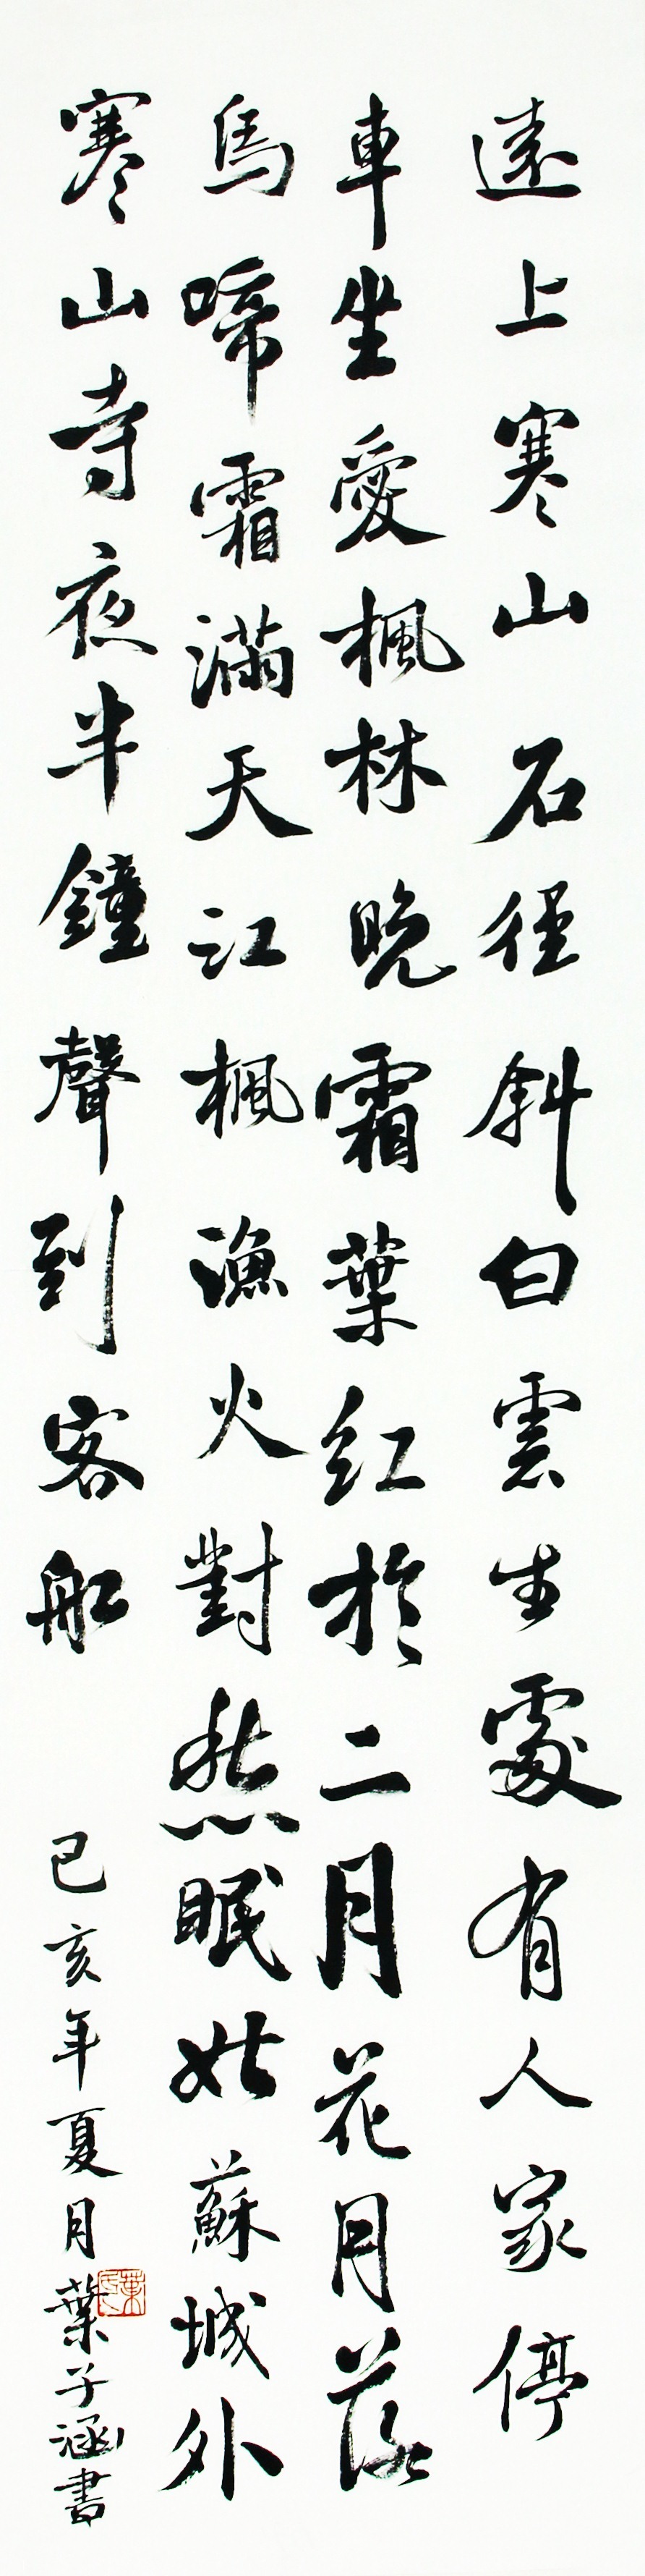 遠上寒山石徑斜白雲生處有人家停
車坐愛楓林晚霜葉紅於二月花月落
烏啼霜滿天江楓漁火對愁眠姑蘇城外
寒山寺夜半鐘聲到客船
己亥年夏月葉子涵書